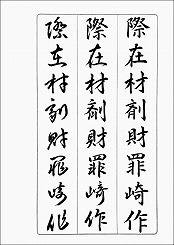 際在材剤財罪崎作
際在材剤財罪崎作
際在材剤財罪崎作